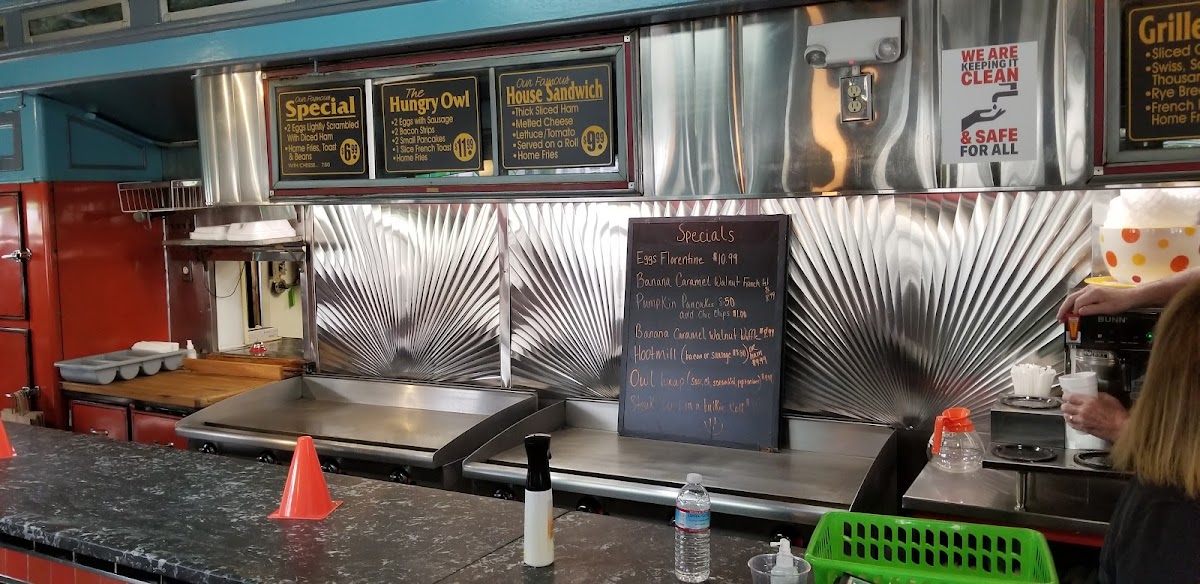 Our Famous
Special
•2 Eggs Lightly Scrambled
With Diced Ham
•Home Fries, Toast
& Beans
The
Hungry Owl
•2 Eggs with Sausage
•2 Bacon Strips
•2 Small Pancakes
•1 Slice French Toast
•Home Fries
$11.99
Our Famous
House Sandwich
•Thick Sliced Ham
•Melted Cheese
•Lettuce/Tomato
•Served on a Roll
Home Fries
$9.99
WE ARE
KEEPING IT
CLEAN
& SAFE
FOR ALL
Grille
•Sliced
•Swiss,
Thousan
•Rye Bre
•French
Home Fr
Specials
Eggs Florentine $10.99
Banana Caramel Walnut French
Pumpkin Pancakes 8.50
add Choc Chips $1.00
Banana Caramel Walnut Waffle
Hootmill (bacon or sausage
Owl Wrap
BUNN